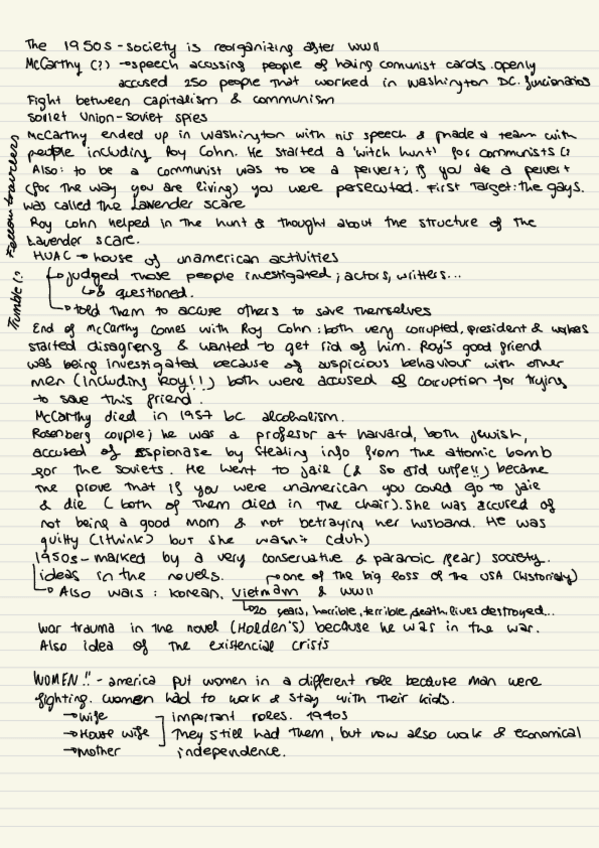 The 1950s - society is reorganizing after WWII
McCarthy (?) → speech acussing people of haing comunist cards. openly
accused 250 people that worked in Washington DC. funcionarios
Fight between capitalism & communism
Soviet Union - soviet spies
McCarthy ended up in Washington with his speech & made a team with
people including Roy Cohn. He started a 'witch hunt' for communists (?
Also: to be a communist was to be a pervert; if you are a pervert
(for the way you are living) you were persecuted. First target: the gays.
was called the Lavender scare
Roy Cohn helped in the hunt & thought about the structure of the
Lavender scare.
HUAC → house of unamerican activities
↳ judged those people investigated; actors, writters...
↳ & questioned.
↳ told them to accuse others to save themselves
Fellow travelers
Trumble (?
End of McCarthy comes with Roy Cohn: both very corrupted, president &
started disagreing & wanted to get rid of him. Roy's good friend
was being investigated because of suspicious behaviour with other
men (including Roy!!) both were accused of corruption for trying
to save this friend.
McCarthy died in 1957 bc alcoholism.
Rosenberg couple; he was a profesor at harvard, both jewish,
accused of espionase by stealing info from the attomic bomb
for the soviets. He went to jail (& so did wife!!) became
the prove that if you were unamerican you could go to jail
& die (both of them died in the chair). She was accused of
not being a good mom & not betraying her husband. He was
guilty (I think) but she wasn't (duh)
1950s - marked by a very conservative & paranoic (fear) society.
ideas in the novels. → one of the big loss of the USA (historicly)
↳ Also wars: korean, Vietnam & WWII
↳ 20 years, horrible, terrible, death, lives destroyed...
War trauma in the novel (Holden's) because he was in the war.
Also idea of the existencial crisis
WOMEN!! - america put women in a different role because man were
fighting. Women had to work & stay with their kids.
→ Wife important roles. 1940s
→ House wife They still had them, but now also work & economical
→ Mother independence.